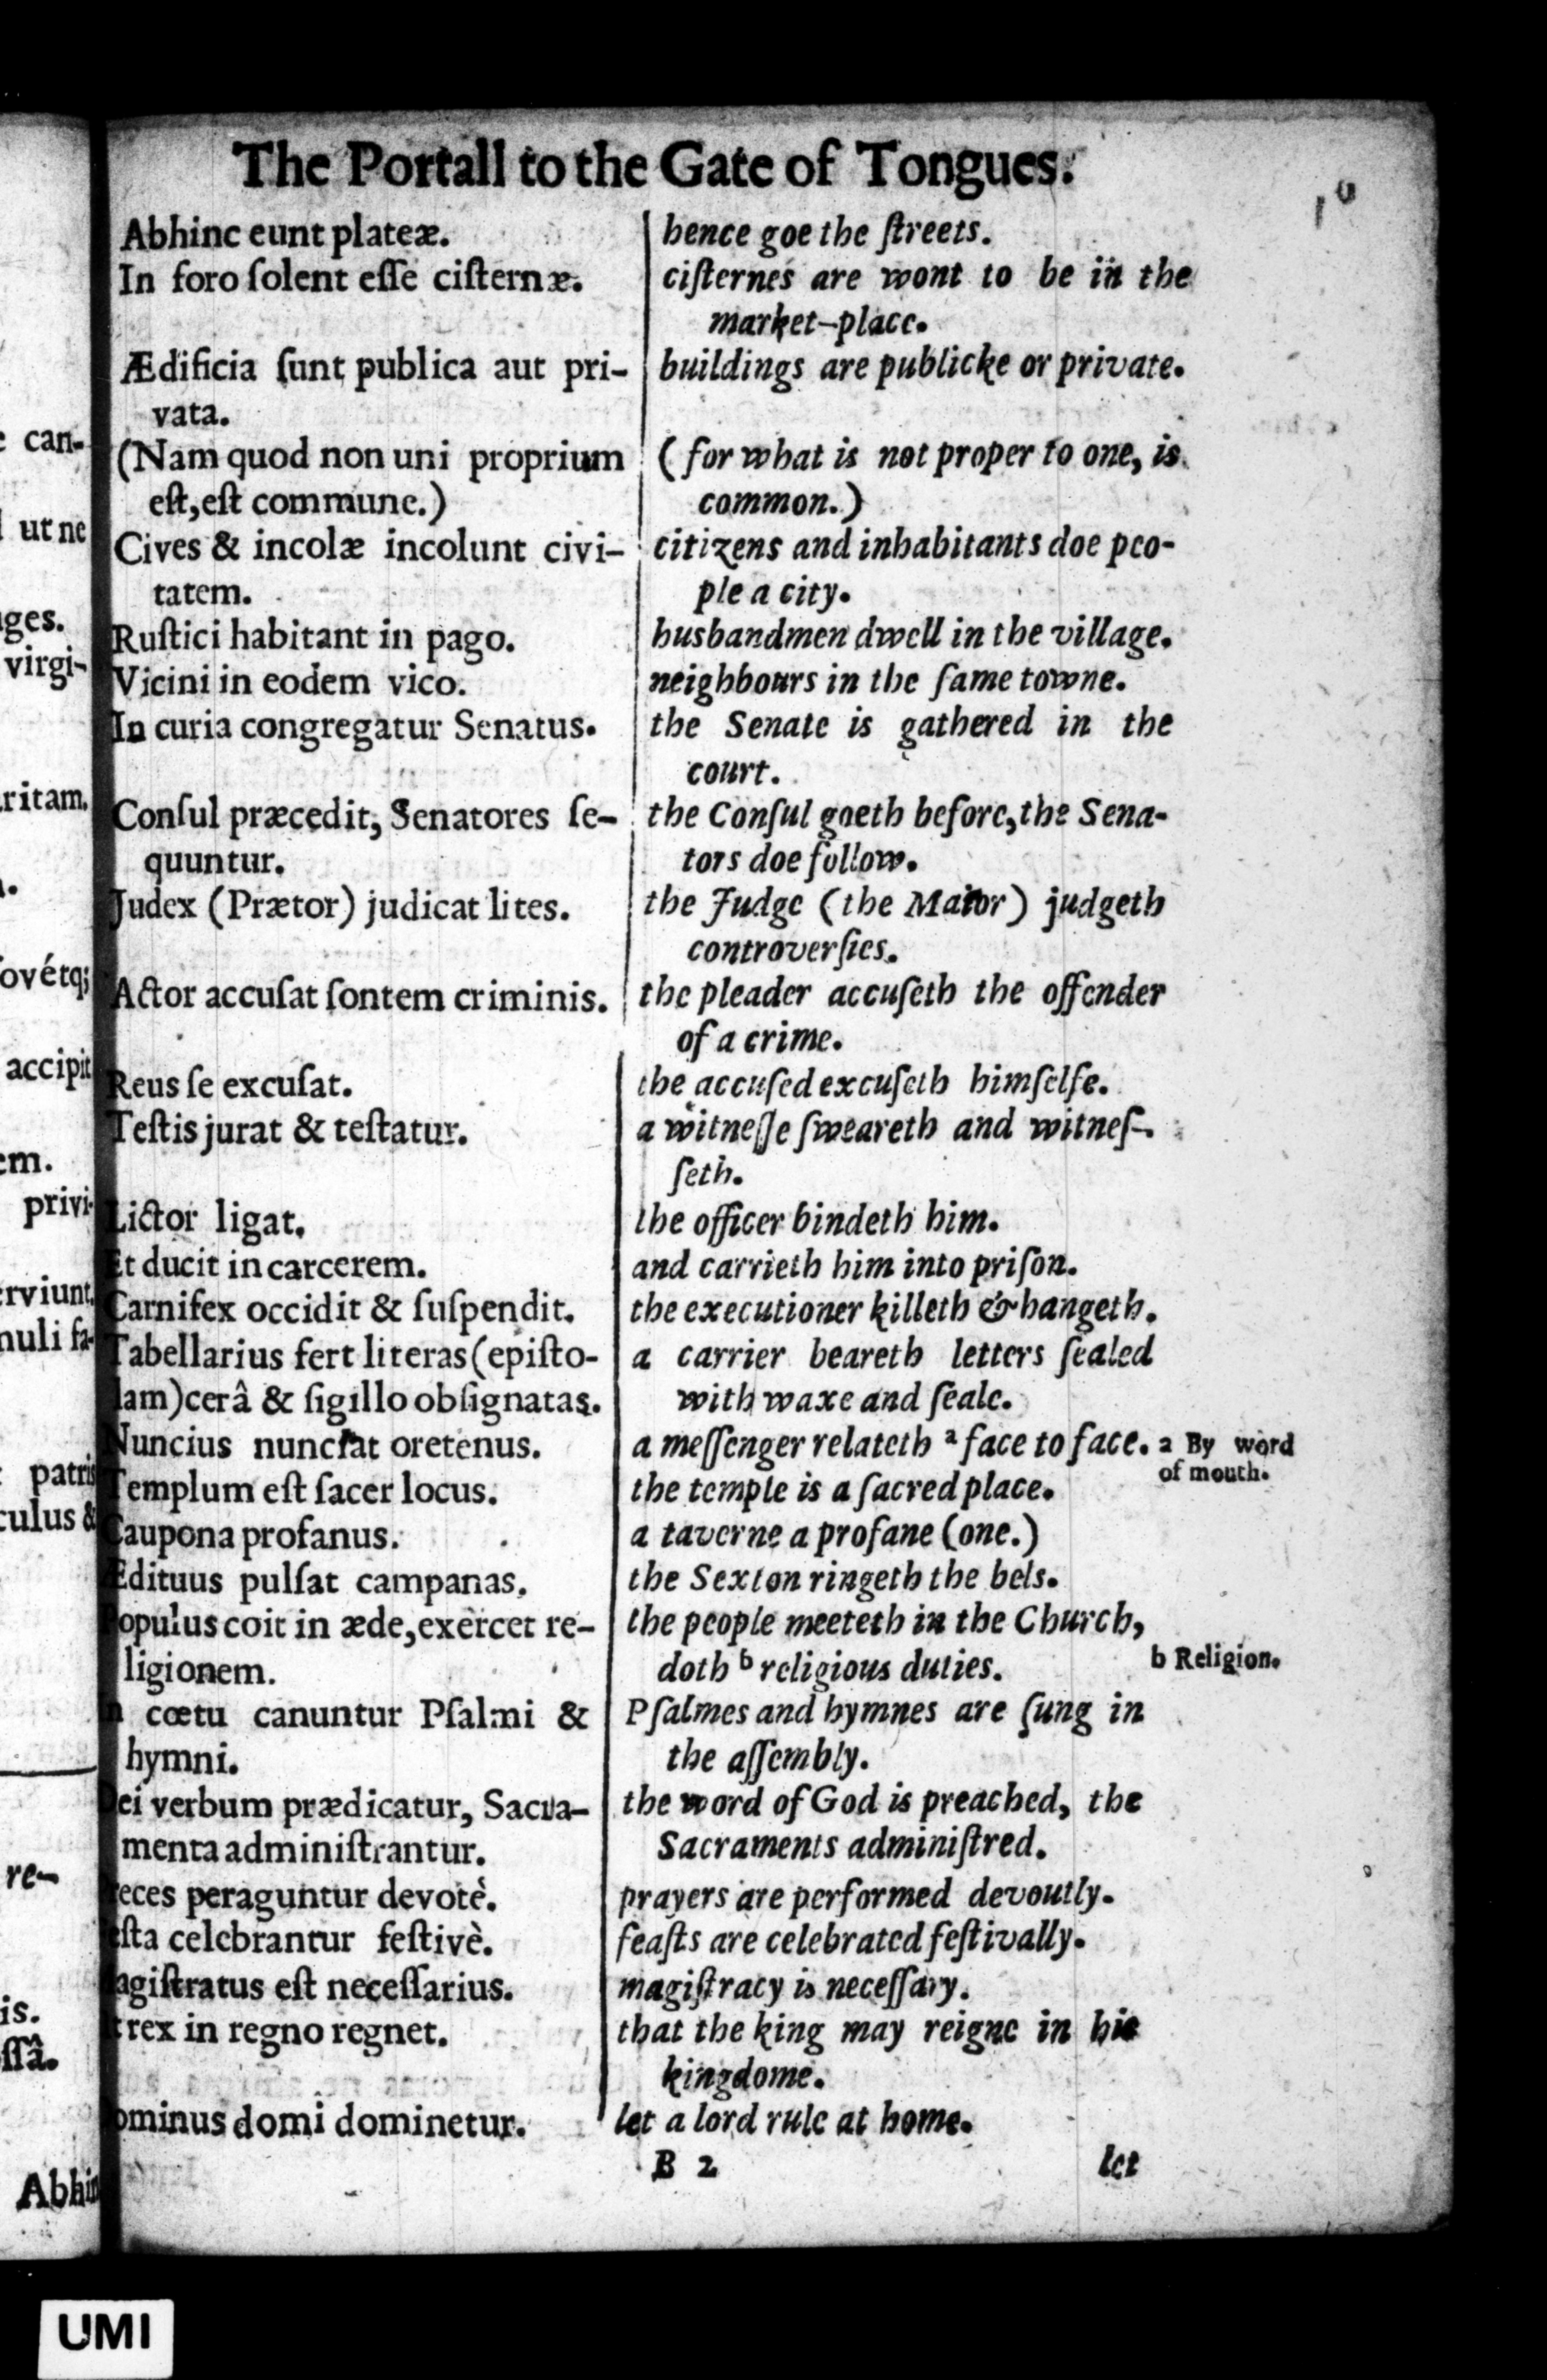 The Portall to the Gate of Tongues.
Abhinc eunt plateæ.
In foro ſolent eſſe ciſternæ.
Ædificia ſunt publica aut pri-
vata.
(Nam quod non uni proprium
eſt, eſt commune.)
Cives & incolæ incolunt civi-
tatem.
Ruſtici habitant in pago.
Vicini in eodem vico.
In curia congregatur Senatus.
Conſul præcedit, Senatores ſe-
quuntur.
Judex (Prætor) judicat lites.
Actor accuſat ſontem criminis.
Reus ſe excuſat.
Teſtis jurat & teſtatur.
Lictor ligat.
Et ducit in carcerem.
Carnifex occidit & ſuſpendit.
Tabellarius fert literas (epiſto-
lam) cerâ & ſigillo obſignatas.
Nuncius nunciat oretenus.
Templum eſt ſacer locus.
Caupona profanus.
Ædituus pulſat campanas.
Populus coit in æde, exercet re-
ligionem.
In cœtu canuntur Pſalmi &
hymni.
Dei verbum prædicatur, Sacra-
menta adminiſtrantur.
eces peraguntur devotè.
eſta celebrantur feſtivè.
agiſtratus eſt neceſſarius.
t rex in regno regnet.
ominus domi dominetur.
hence goe the ſtreets.
ciſternes are wont to be in the
market-place.
buildings are publicke or private.
(for what is not proper to one, is
common.)
citizens and inhabitants doe peo-
ple a city.
husbandmen dwell in the village.
neighbours in the ſame towne.
the Senate is gathered in the
court.
the Conſul goeth before, the Sena-
tors doe follow.
the Judge (the Maior) judgeth
controverſies.
the pleader accuſeth the offender
of a crime.
the accuſed excuſeth himſelfe.
a witneſſe ſweareth and witneſ-
ſeth.
the officer bindeth him.
and carrieth him into priſon.
the executioner killeth & hangeth.
a carrier beareth letters ſealed
with waxe and ſeale.
a meſſenger relateth a face to face.
the temple is a ſacred place.
a taverne a profane (one.)
the Sexton ringeth the bels.
the people meeteth in the Church,
doth b religious duties.
Pſalmes and hymnes are ſung in
the aſſembly.
the word of God is preached, the
Sacraments adminiſtred.
prayers are performed devoutly.
feaſts are celebrated feſtivally.
magiſtracy is neceſſary.
that the king may reigne in his
kingdome.
let a lord rule at home.
a By word
of mouth.
b Religion.
B 2
let
can-
ut ne
ges.
virgi-
ritam.
ovétq;
accipit
em.
privi-
rviunt.
nuli fa-
patris
culus &
re-
is.
ſſâ.
Abhin
UMI